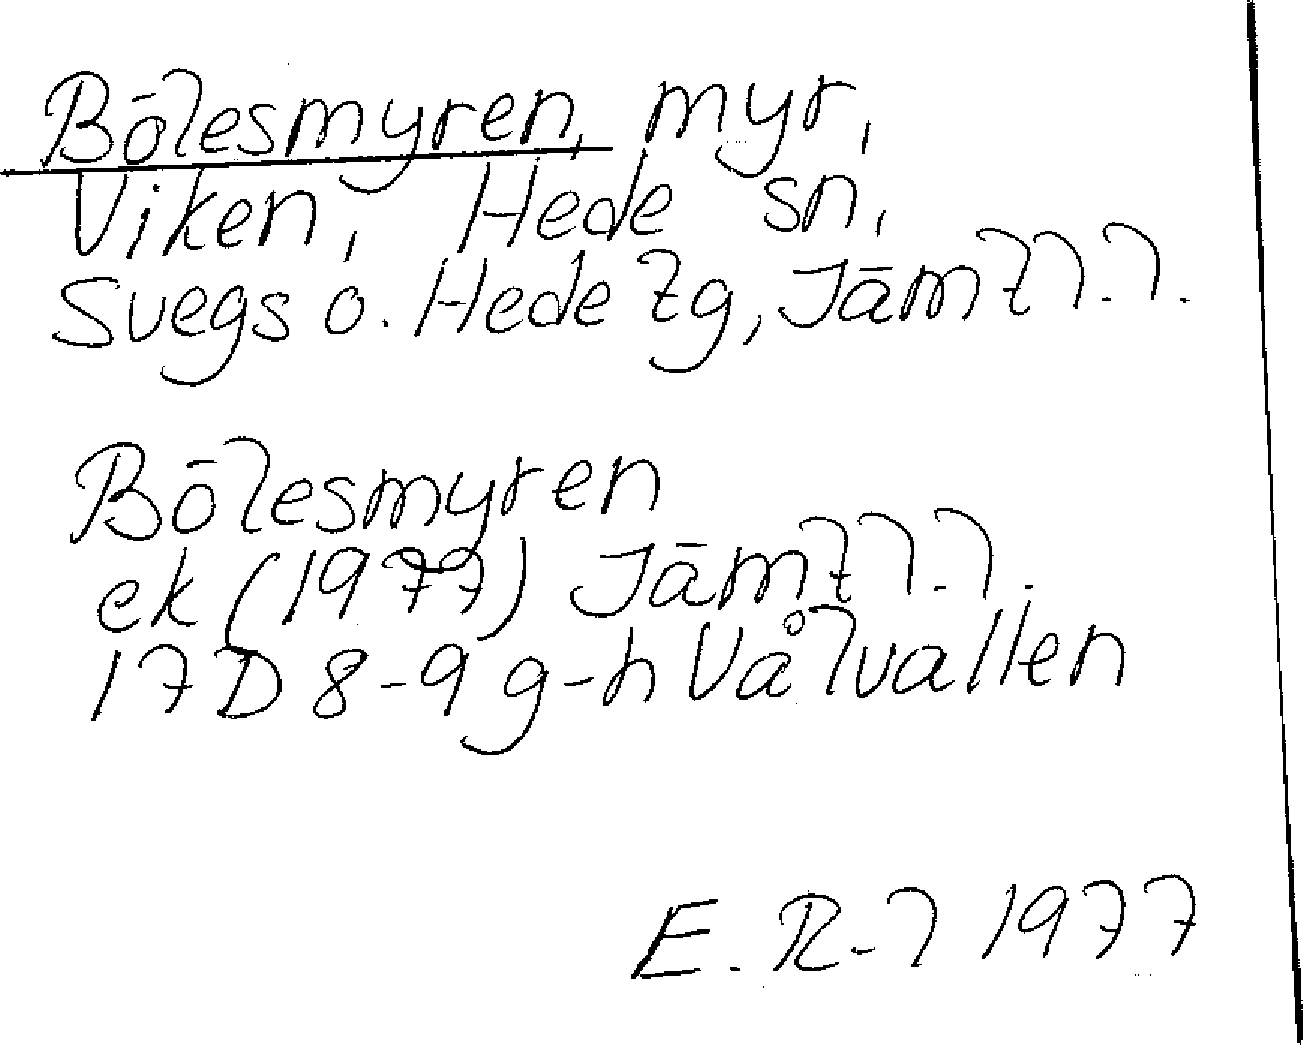 Bölesmyren, myr,
Viken, Hede sn,
Svegs o. Hede tg, Jämtl.l.
Bölesmyren
ek (1977) Jämtl.l.
17D 8-9 g-h Vålvallen
E.R-l 1977